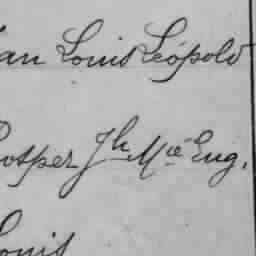 an Louis Léopold
rosper Jh Mie Eug.
Louis